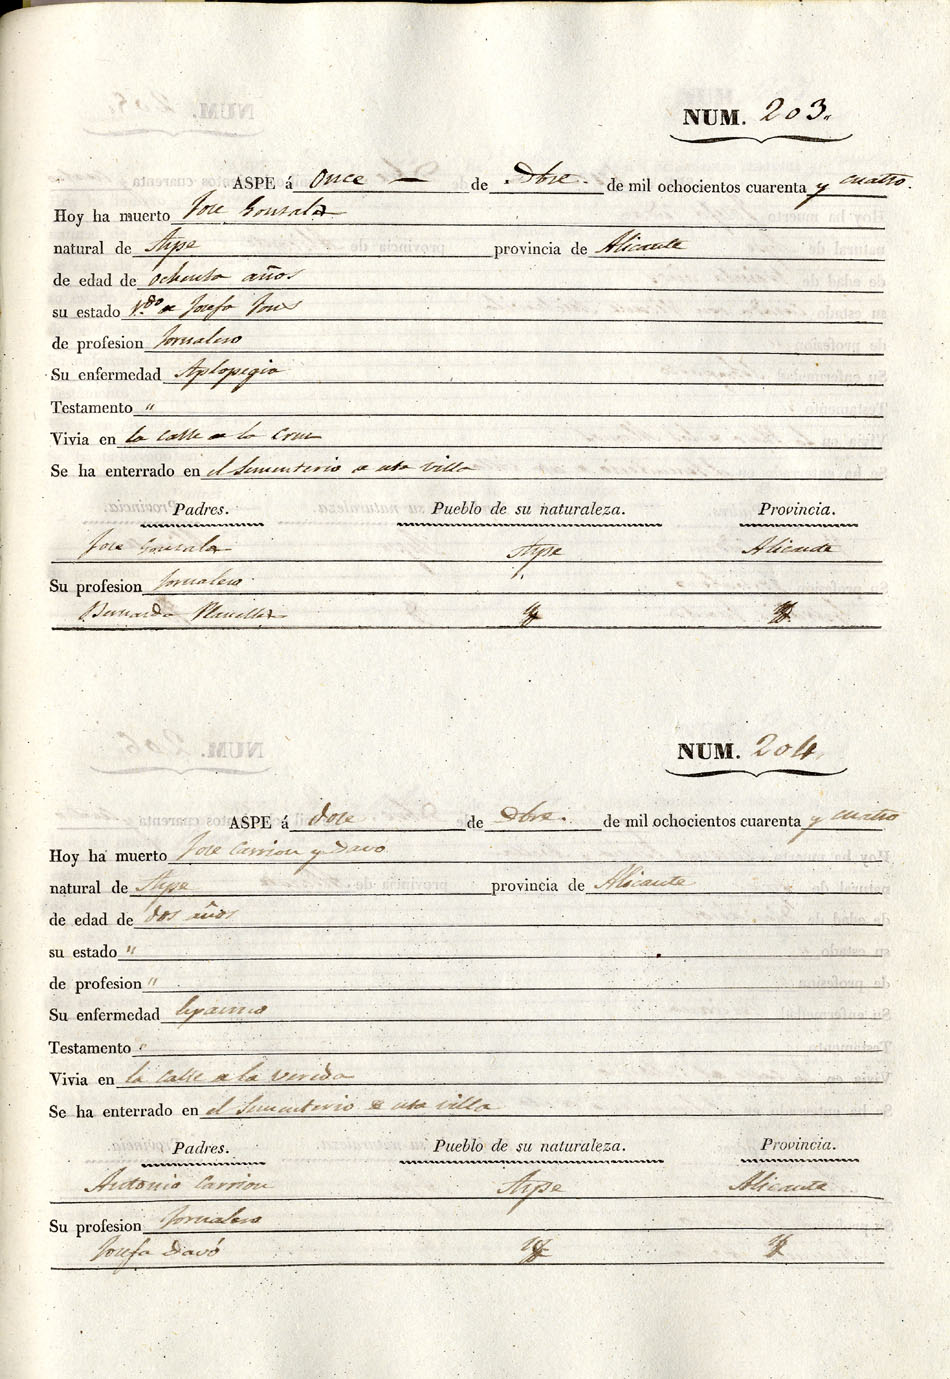 NUM. 203.
ASPE á Once — de Dbre. de mil ochocientos cuarenta y cuatro.
Hoy ha muerto Jose Gonzalez
natural de Aspe provincia de Alicante
de edad de ochenta años
su estado V.do de Josefa
de profesion Jornalero
Su enfermedad Aplopegia
Testamento "
Vivia en la calle de la Cruz
Se ha enterrado en el Sementerio de esta villa
Padres. Pueblo de su naturaleza. Provincia.
Jose Gonzalez Aspe Alicante
Su profesion Jornalero
Bernarda
NUM. 204.
ASPE á doce de Dbre. de mil ochocientos cuarenta y cuatro
Hoy ha muerto Jose Carrion y Davo
natural de Aspe provincia de Alicante
de edad de dos años
su estado "
de profesion "
Su enfermedad
Testamento "
Vivia en la calle de la vereda
Se ha enterrado en el Sementerio de esta villa
Padres. Pueblo de su naturaleza. Provincia.
Antonio Carrion Aspe Alicante
Su profesion Jornalero
Josefa Davó